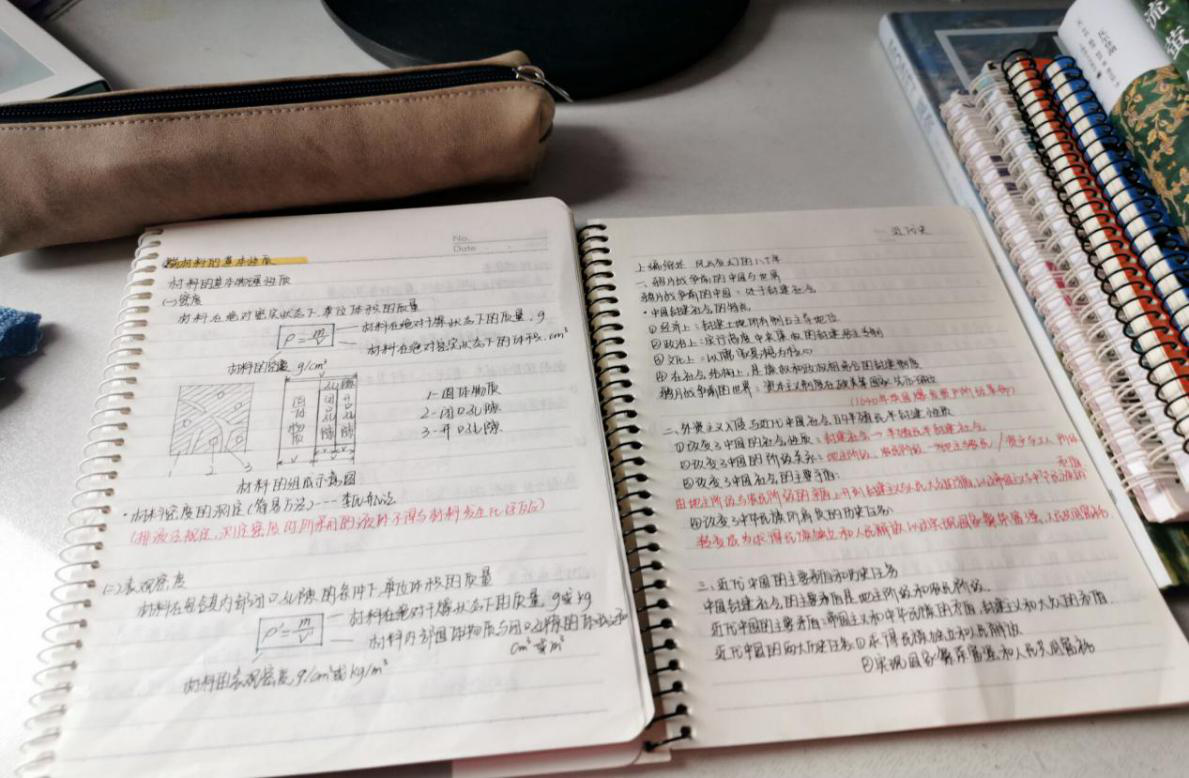 No.
Date
材料的基本性质
材料的基本物理性质
(一)密度
材料在绝对密实状态下,单位体积的质量
ρ=m/V
材料在绝对干燥状态下的质量,g
材料在绝对密实状态下的体积,cm³
材料的密度 g/cm³
固体物质
闭口孔隙
开口孔隙
1-固体物质
2-闭口孔隙
3-开口孔隙
1 2 3
材料的组成示意图
·材料密度的测定(简易方法)---李氏瓶法
(排液法规定,测定密度时所采用的液体不得与材料发生化学反应)
(二)表观密度
材料在包含其内部闭口孔隙的条件下,单位体积的质量
ρ'=m/V'
材料在绝对干燥状态下的质量,g或kg
材料内部固体物质与闭口孔隙的体积之和
cm³或m³
材料的表观密度,g/cm³或kg/m³
近代史
上编综述 风云变幻的八十年
一、鸦片战争前的中国与世界
鸦片战争前的中国:处于封建社会
·中国封建社会的特点
①经济上:封建土地所有制占主导地位
②政治上:实行高度中央集权的封建君主专制
③文化上:以儒家思想为核心
④在社会结构上,是族权和政权相结合的封建
鸦片战争前的世界:资本主义制度在欧美
(1640年英国爆发资产阶级革命)
二、外国资本主义入侵与近代中国社会的半殖民地半封建性质
①改变了中国的社会性质:封建社会→半殖民地半封建社会
②改变了中国的阶级关系:地主阶级、农民阶级
③改变了中国的主要矛盾:
由地主阶级与农民阶级的矛盾上升到封建主义与人民大众
④改变了中华民族所肩负的历史任务:
转变成为求得民族独立和人民解放
三、近代中国的主要矛盾和历史任务
中国封建社会的主要矛盾是地主阶级和农民阶级。
近代中国的主要矛盾:帝国主义和中华民族的矛盾,封建主义和大众的矛盾
近代中国的两大历史任务:①求得民族独立和人民解放
②实现国家繁荣富强和人民共同富裕